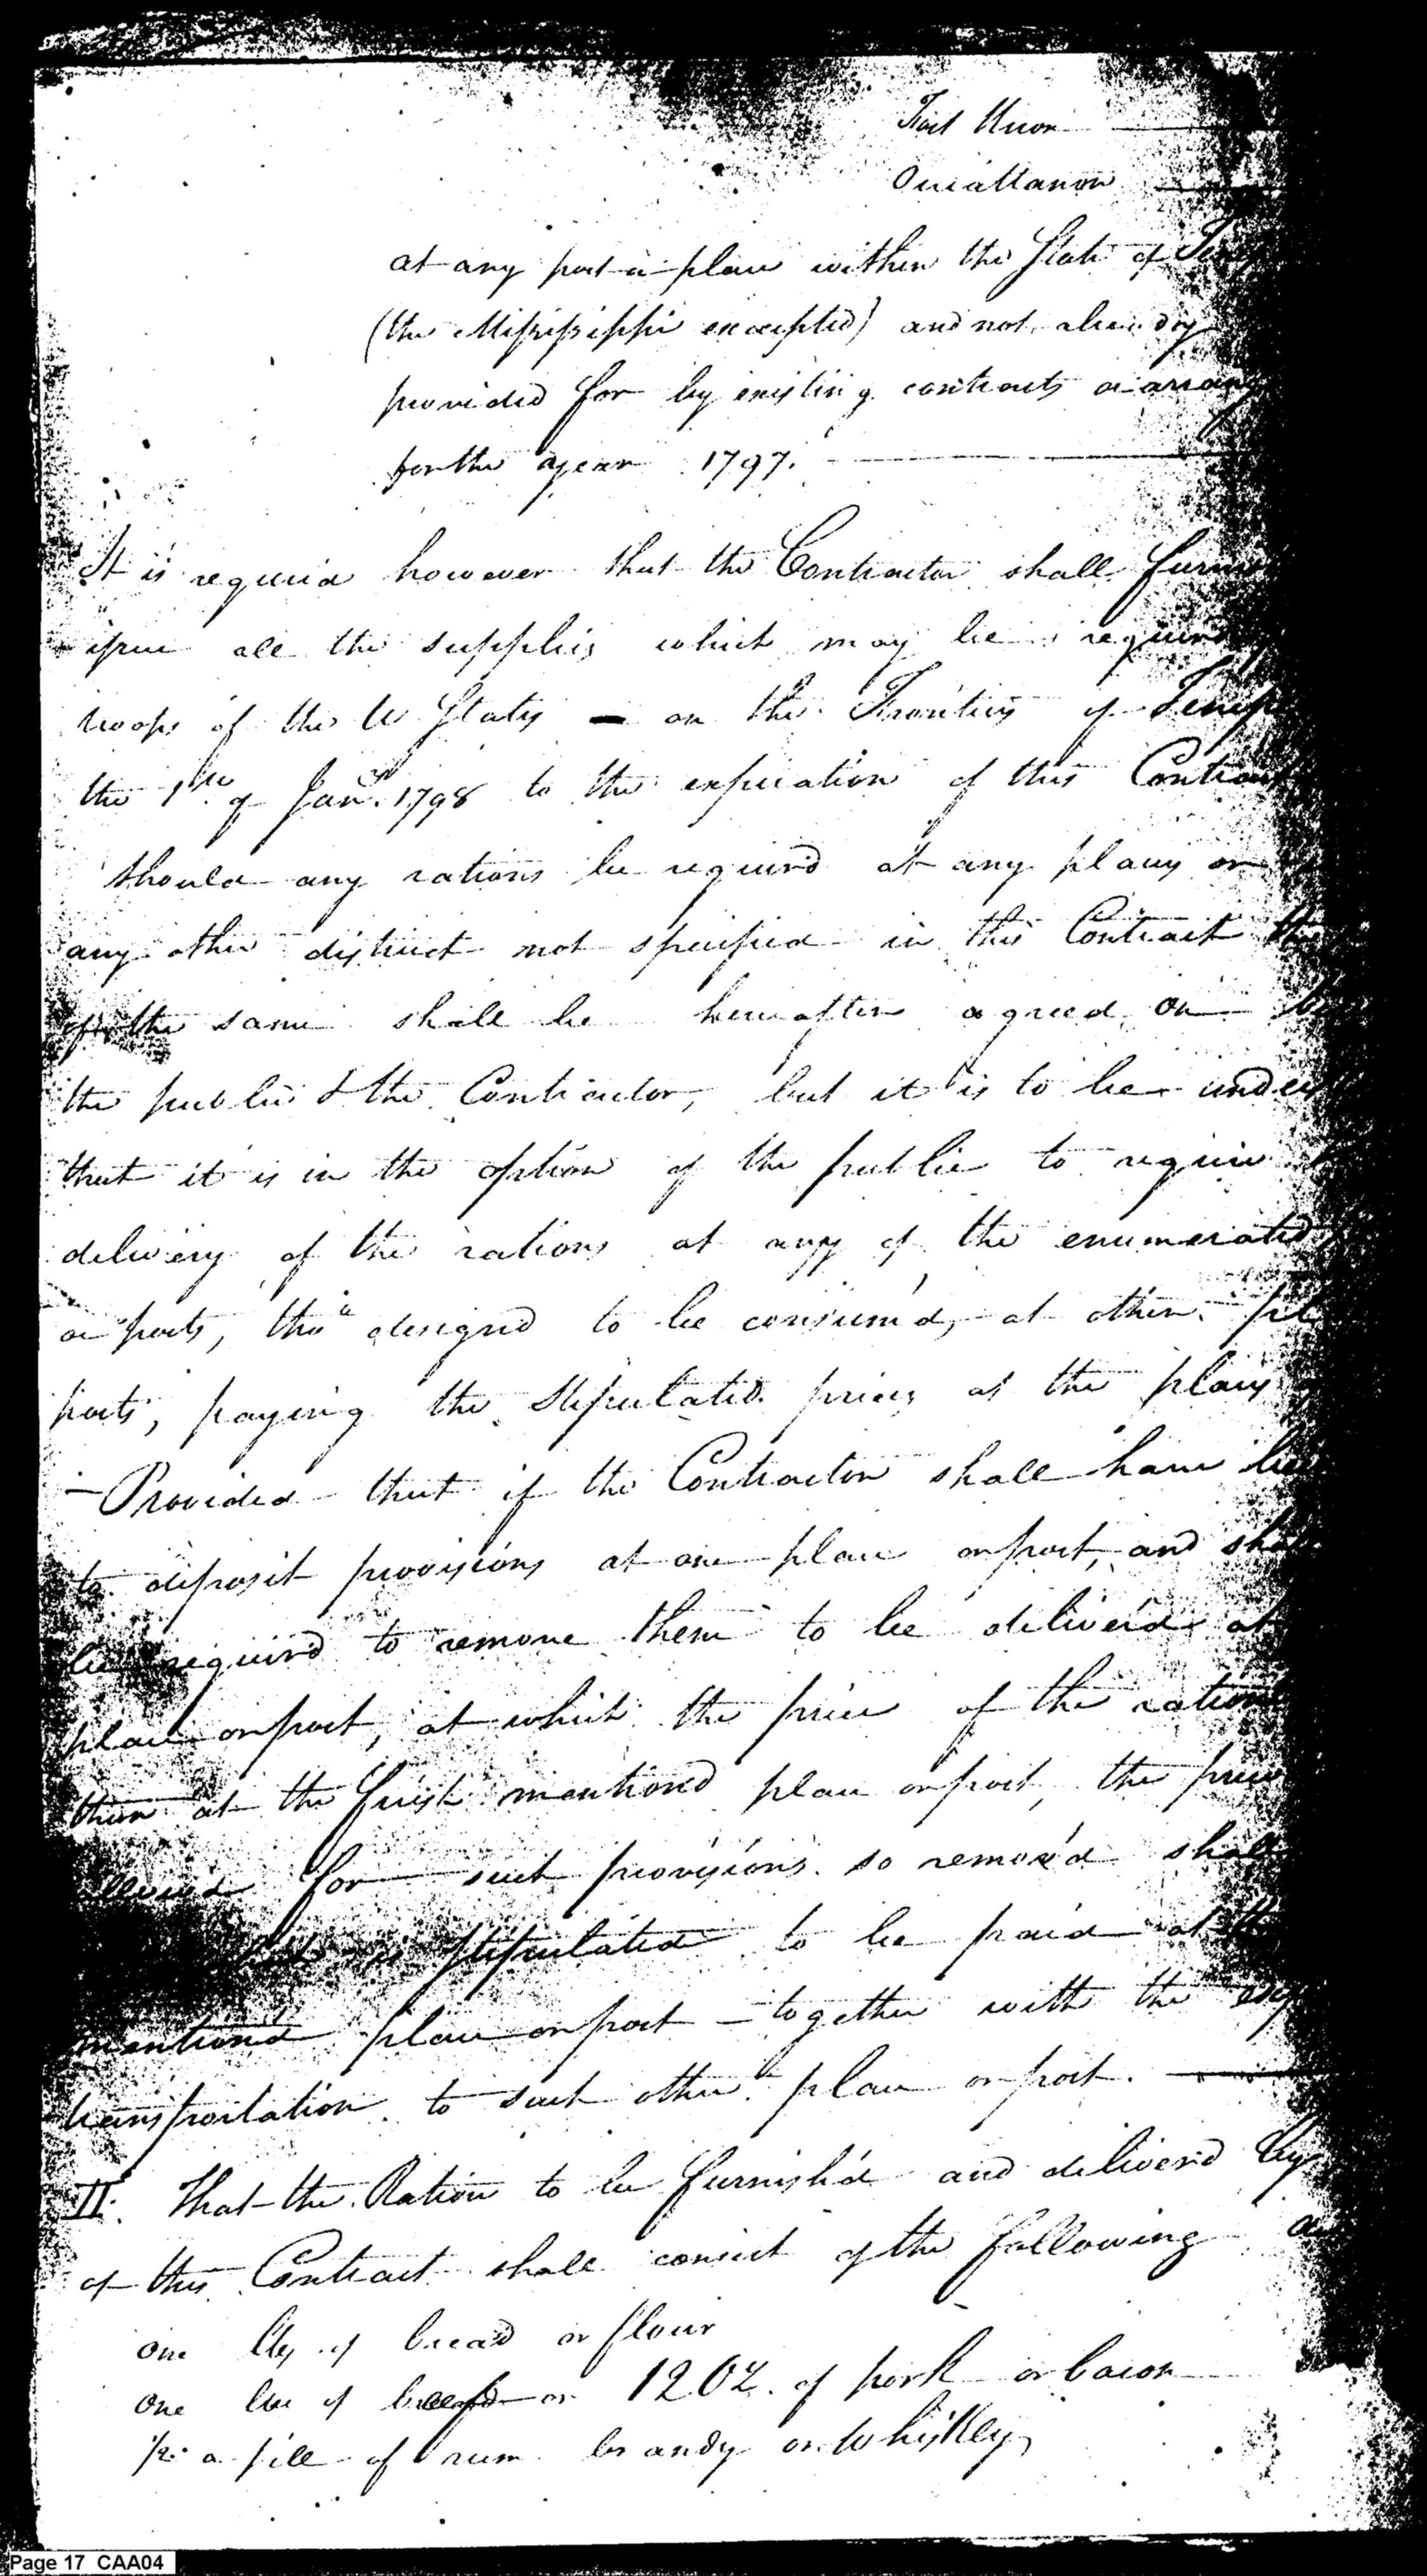 Fort Union
Ouiattanon
at any post or place within the State of Tenn
(the Missisippi excepted) and not already
provided for by existing contracts or arrang
for the year 1797.
It is requird however that the Contractor shall furni
issue all the supplies which may be requird
troops of the U States - on the Frontiers of Teness
the 1st of Jany. 1798 to the expiration of this Contract
Should any rations be requird at any places or
any other district not specified in this Contract the
of the same shall be hereafter agreed on be
the public & the Contractor, but it is to be unders
that it is in the option of the public to require
delivery of the rations at any of the enumerated
or posts, tho' designd to be consum'd, at other pl
posts, paying the stipulated prices at the places
- Provided that if the Contractor shall have bee
to deposit provisions at one place or post, and shal
be requird to remove them to be deliver'd at
place or post, at which the price of the ration
than at the first mentiond place or post, the price
allowed for such provisions so remov'd shall
is stipulated to be paid at the
mention'd place or post - together with the exp
transportation to such other place or post.
II. That the Ration to be furnish'd and deliver'd by
of this Contract shall consist of the following a
one lb of bread or flour
one lb of beef or 12 OZ. of pork or bacon
1/2 a gill of rum brandy or Whiskey
Page 17 CAA04